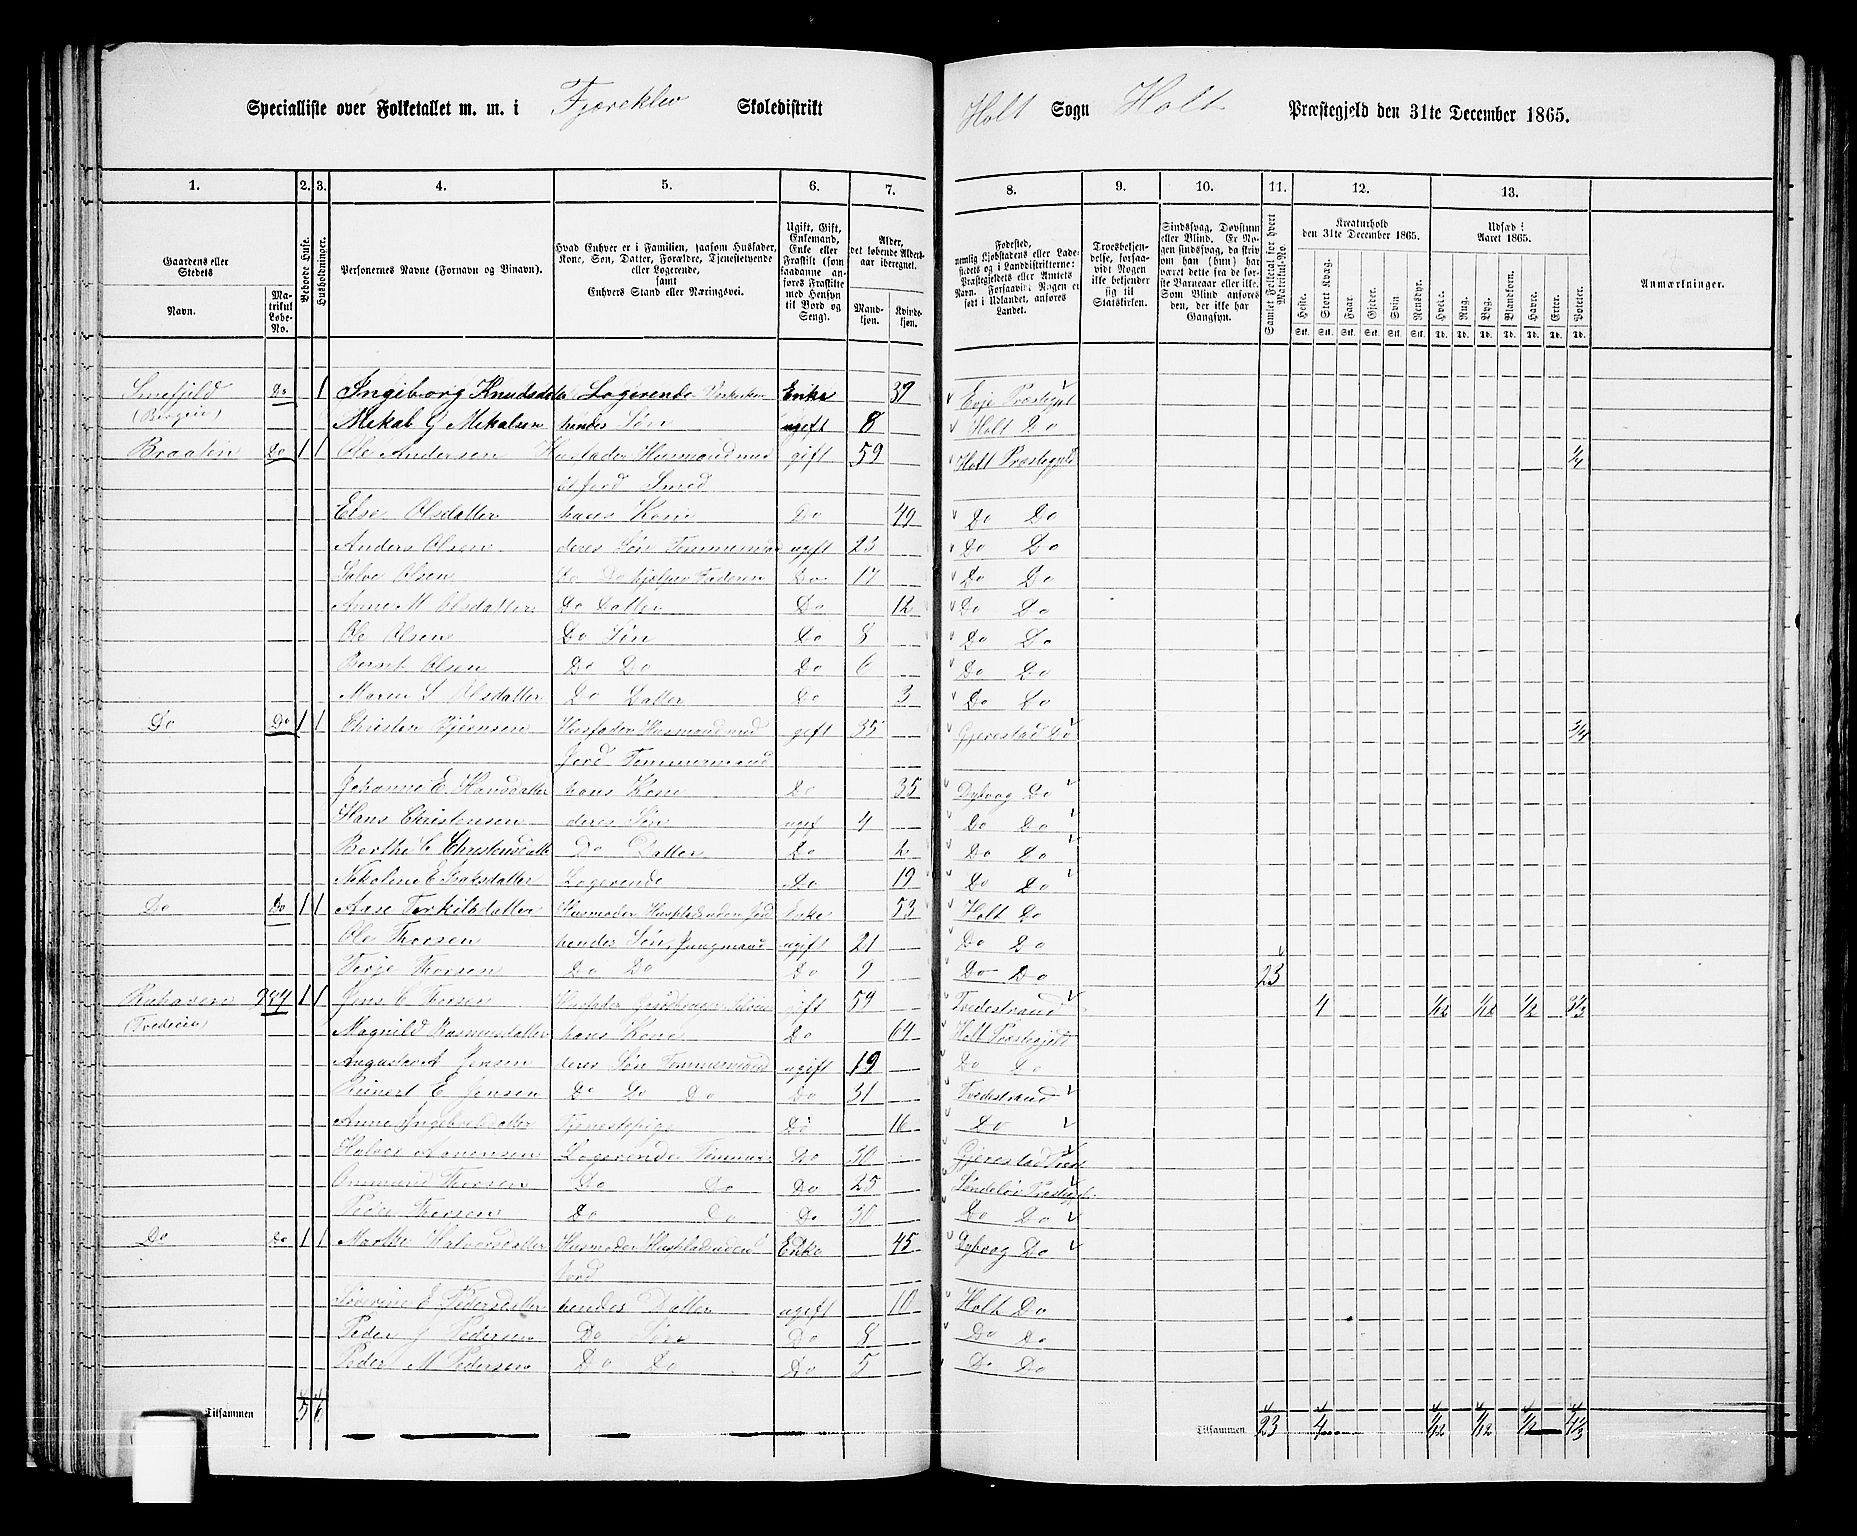 Specialliste over Folketallet m. m. i Fjæreklev Skoledistrikt Holt Sogn Holt Præstegjeld den 31te December 1865.
1. 2. 3. 4. 5. 6. 7. 8. 9. 10. 11. 12. 13.
Gaardens eller Stedets
Navn. Matrikul Løbe-No.
Beboede Huse.
Husholdninger.
Personernes Navne (Fornavn og Binavn).
Hvad Enhver er i Familien, saasom Husfader, Kone, Søn, Datter, Forældre, Tjenestetyende eller Logerende, samt Enhvers Stand eller Næringsvei.
Ugift, Gift, Enkemand, Enke eller Fraskilt (som saadanne anføres Fraskilte med Hensyn til Bord og Seng).
Alder, det løbende Alders-aar iberegnet.
Mandkjøn. Kvindekjøn.
Fødested, nemlig Kjøbstadens eller Ladestedets og i Landdistrikterne: Præstegjeldets eller Amtets Navn. Forsaavidt Nogen er født i Udlandet, anføres Landet.
Troesbekjendelse, forsaavidt Nogen ikke bekjender sig til Statskirken.
Sindssvag, Døvstum eller Blind. Er Nogen sindssvag, da skrives om han (hun) har været dette fra de første Barneaar eller ikke. Som Blind anføres den, der ikke har Gangsyn.
Samlet Folketal for hvert Matrikul-No.
Kreaturhold den 31te December 1865.
Heste. Stort Kvæg. Faar. Gjeder. Svin. Rensdyr.
Udsæd i Aaret 1865.
Hvede. Rug. Byg. Blandkorn. Havre. Erter. Poteter.
Anmærkninger.
Smefjeld Do 1 Ingeborg Knudsdatter Logerende Enke 37 Evje Præstegjel
Mekal G Mekalsen hendes Søn ugift 8 Holt Do
Braaten Do 1 1 Ole Andersen Husfader Husmand med gift 59 Holt Præstegjeld 1/4
Jord Smed
Else Olsdatter hans Kone Do 49 Do Do
Anders Olsen deres Søn Tømmermand ugift 23 Do Do
Salve Olsen Do Do hjelper Faderen Do 17 Do Do
Anne M Olsdatter Do Datter Do 12 Do Do
Ole Olsen Do Søn Do 8 Do Do
Bernt Olsen Do Do Do 6 Do Do
Maren S Olsdatter Do Datter Do 3 Do Do
Do Do 1 1 Christen Bjørnsen Husfader Husmand med gift 35 Gjerestad Do 3/4
Jord Tømmermand
Johanne E Hansdatter hans Kone Do 35 Dybvag Do
Hans Christensen deres Søn ugif 4 Do Do
Berthe C Christensdatte Do Datter Do 2 Do Do
Nikoline E Isaksdatter Logerende Do 19 Do Do
Do Do 1 1 Aase Terkilsdatter Husmoder Huusplads uden Jord Enke 53 Holt Do
Ole Thorsen hendes Søn, Jungmand ugift 21 Do Do
Terje Thorsen Do Do Do 9 Do Do 23
984 1 1 Jens C Thorsen Husfader Gaardbruger Selveier gift 59 Tvedestrand 4 1/12 1/12 1/2 3 1/3
Magnild Rasmusdatter hans Kone Do 64 Holt Præstegjeld
August A Jensen deres Søn Tømmermand ugift 19 Do Do
Reinert E Jensen Do Do Do Do 31 Tvedestrand
Anne Ingebretsdatter Tjenestepige Do 16 Do
Halvor Aanensen Logerende Tømmer Do 30 Gjerestad Præst
Ommund Thorsen Do Do Do 25 Søndeløv Præstegjel
Peder Thorsen Do Do Do 30 Do Do
Do Do 1 1 Marthe Halvorsdatter Husmoder Husplads uden Enke 45 Dybvag Do
Jord
Severine E Pedersdatter hendes Datter ugift 10 Holt Do
Peder J Pedersen Do Søn Do 8 Do Do
Peder M Pedersen Do Do Do 5 Do Do
Tilsammen 5 6 Tilsammen 23 4 1/12 1/12 1/2 4 1/3